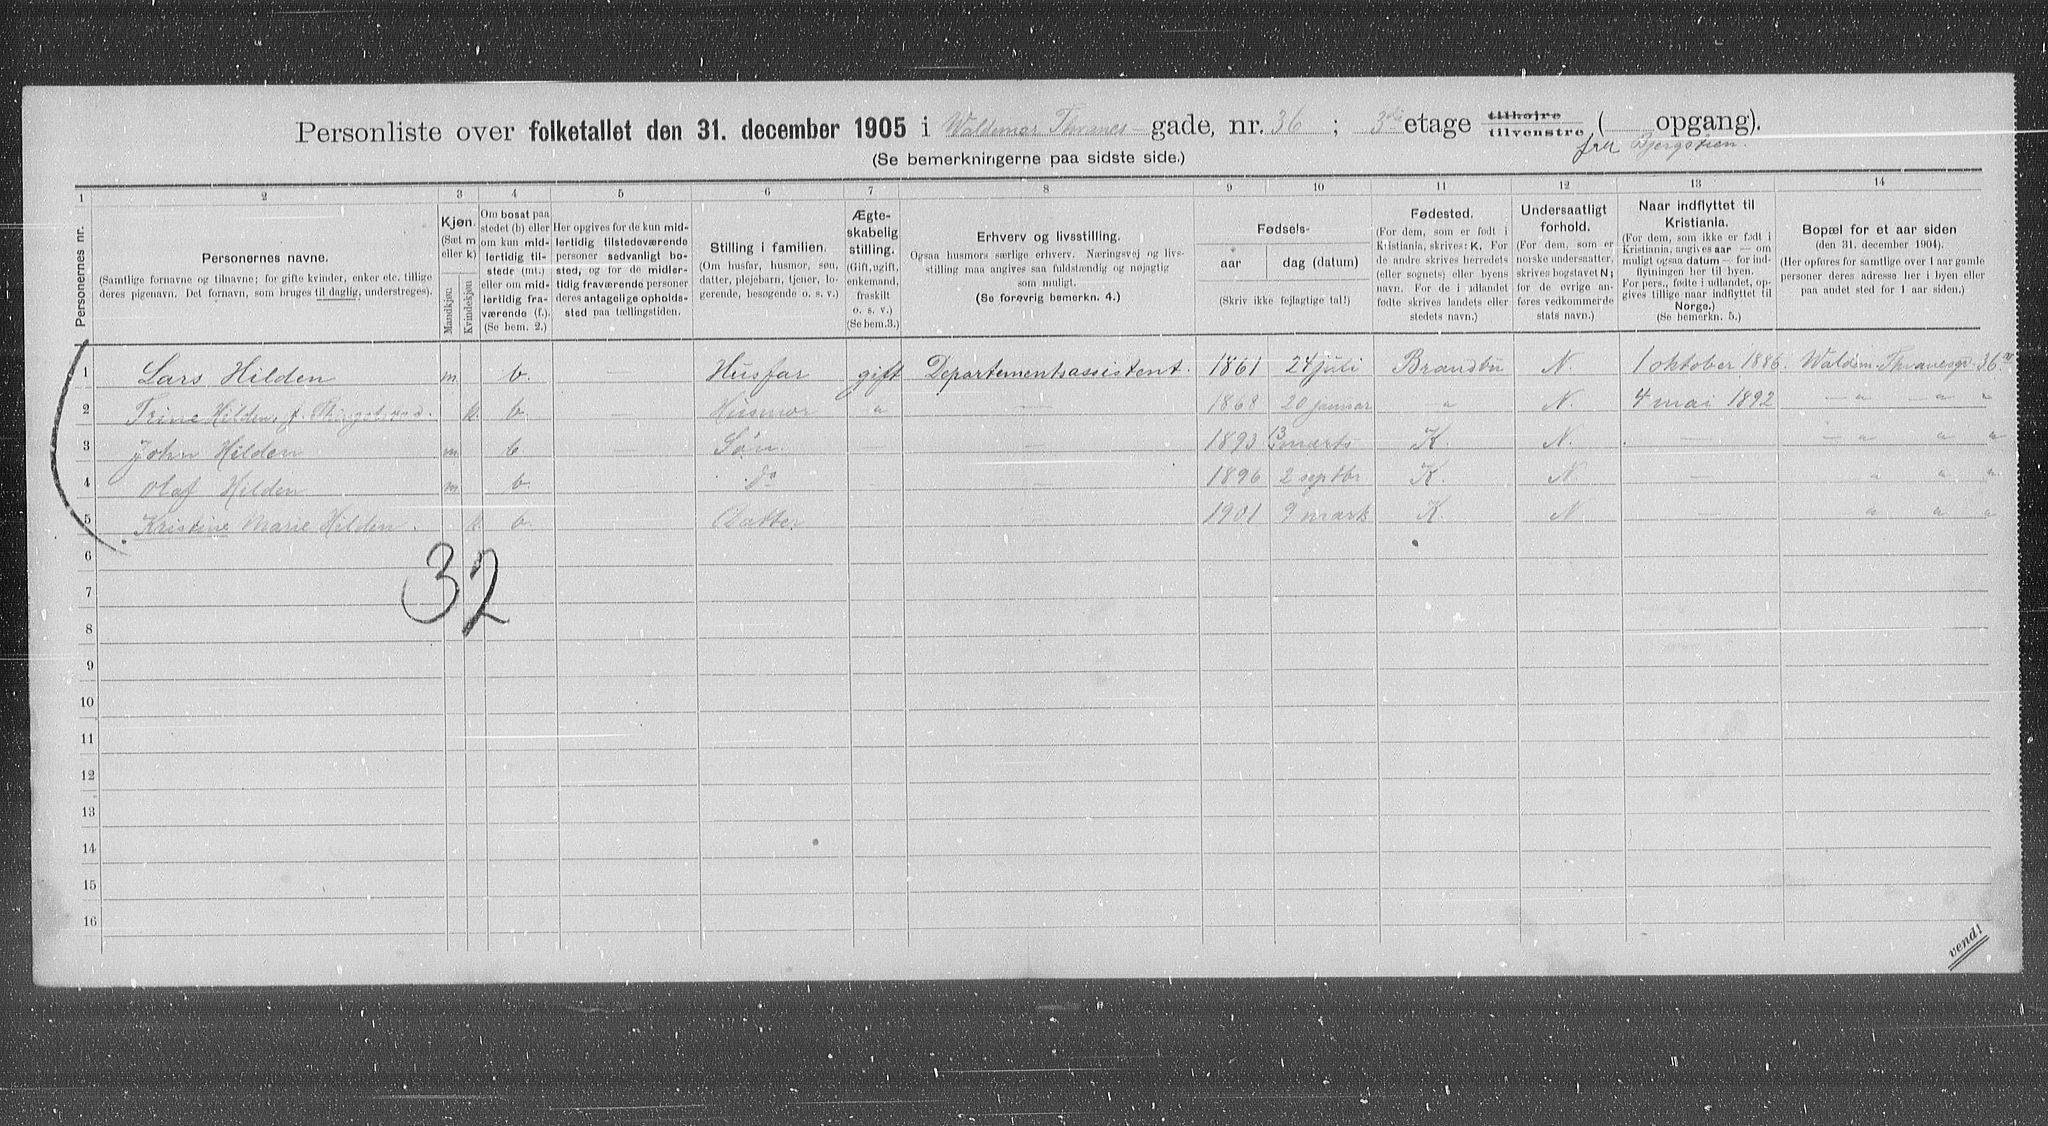 Personliste over folketallet den 31. december 1905 i Waldemar Thranes gade, nr. 36 ; 3die etage tilhøjre tilvenstre ( opgang).
fra Bjergstien.
(Se bemerkningerne paa sidste side.)
1 2 3 4 5 6 7 8 9 10 11 12 13 14
Personernes nr.
Personernes navne.
(Samtlige fornavne og tilnavne; for gifte kvinder, enker etc. tillige
deres pigenavn. Det fornavn, som bruges til daglig, understreges).
Kjøn.
(Sæt m
eller k)
Mandkjøn.
Kvindekjøn.
Om bosat paa
stedet (b) eller
om kun midlertidig tilstede (mt.)
eller om midlertidig fraværende (f.).
(Se bem. 2.)
Her opgives for de kun midlertidig tilstedeværende
personer sedvanligt bosted, og for de midlertidig fraværende personer
deres antagelige opholdssted paa tællingstiden.
Stilling i familien.
(Om husfar, husmor, søn,
datter, plejebarn, tjener, logerende, besøgende o. s. v.)
Ægteskabelig
stilling.
(Gift, ugift,
enkemand,
fraskilt
o. s. v.)
(Se bem. 3.)
Erhverv og livsstilling.
Ogsaa husmors særlige erhverv. Næringsvej og livsstilling maa angives saa fuldstændig og nøjagtig
som muligt.
(Se forøvrig bemerkn. 4.)
Fødsels-
aar
dag (datum)
(Skriv ikke fejlagtige tal!)
Fødested.
(For dem, som er født i
Kristiania, skrives: K. For
de andre skrives herredets
(eller sognets) eller byens
navn. For de i udlandet
fødte skrives landets eller
stedets navn.)
Undersaatligt
forhold.
(For dem, som er
norske undersatter,
skrives bogstavet N;
for de øvrige anføres vedkommende
stats navn.)
Naar indflyttet til
Kristiania.
(For dem, som ikke er født i
Kristiania, angives aar — om
muligt ogsaa datum — for indflytningen her til byen.
For pers., fødte i udlandet, opgives tillige naar indflyttet til
Norge.)
(Se bemerkn. 5.)
Bopæl for et aar siden
(den 31. december 1904).
(Her opføres for samtlige over 1 aar gamle
personer deres adresse her i byen eller
paa andet sted for 1 aar siden.)
1 Lars Hilden m b. — Husfar gift Departementsassistent. 1861 24 juli Brandbu N. 1 oktober 1886 Waldm. Thranesgd 36
2 Trine Hilden, f. Ringstad. k. b. — Husmor " — 1868 20 januar — " N. 4 mai 1892 — " — " "
3 John Hilden m b — Søn — — 1893 13 marts K. N. — — " " "
4 Olaf Hilden m b. do 1896 2 septbr K. N — " " "
5 Kristine Marie Hilden. k. b. Datter 1901 9 mark K. N — " " "
6
32
7
8
9
10
11
12
13
14
15
16
vend!